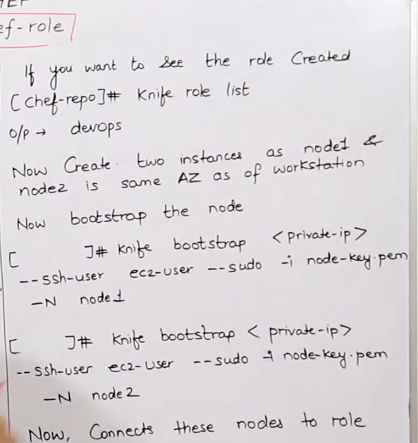 ef-role
If you want to see the role Created
[chef-repo]# Knife role list
o/p → devops
Now Create. two instances as node1 &
node2 is same AZ as of workstation
Now bootstrap the node
[ ]# Knife bootstrap <private-ip>
--ssh-user ec2-user --sudo -i node-key.pem
-N node1
[ ]# Knife bootstrap <private-ip>
--ssh-user ec2-user --sudo -i node-key.pem
-N node2
Now, Connects these nodes to role